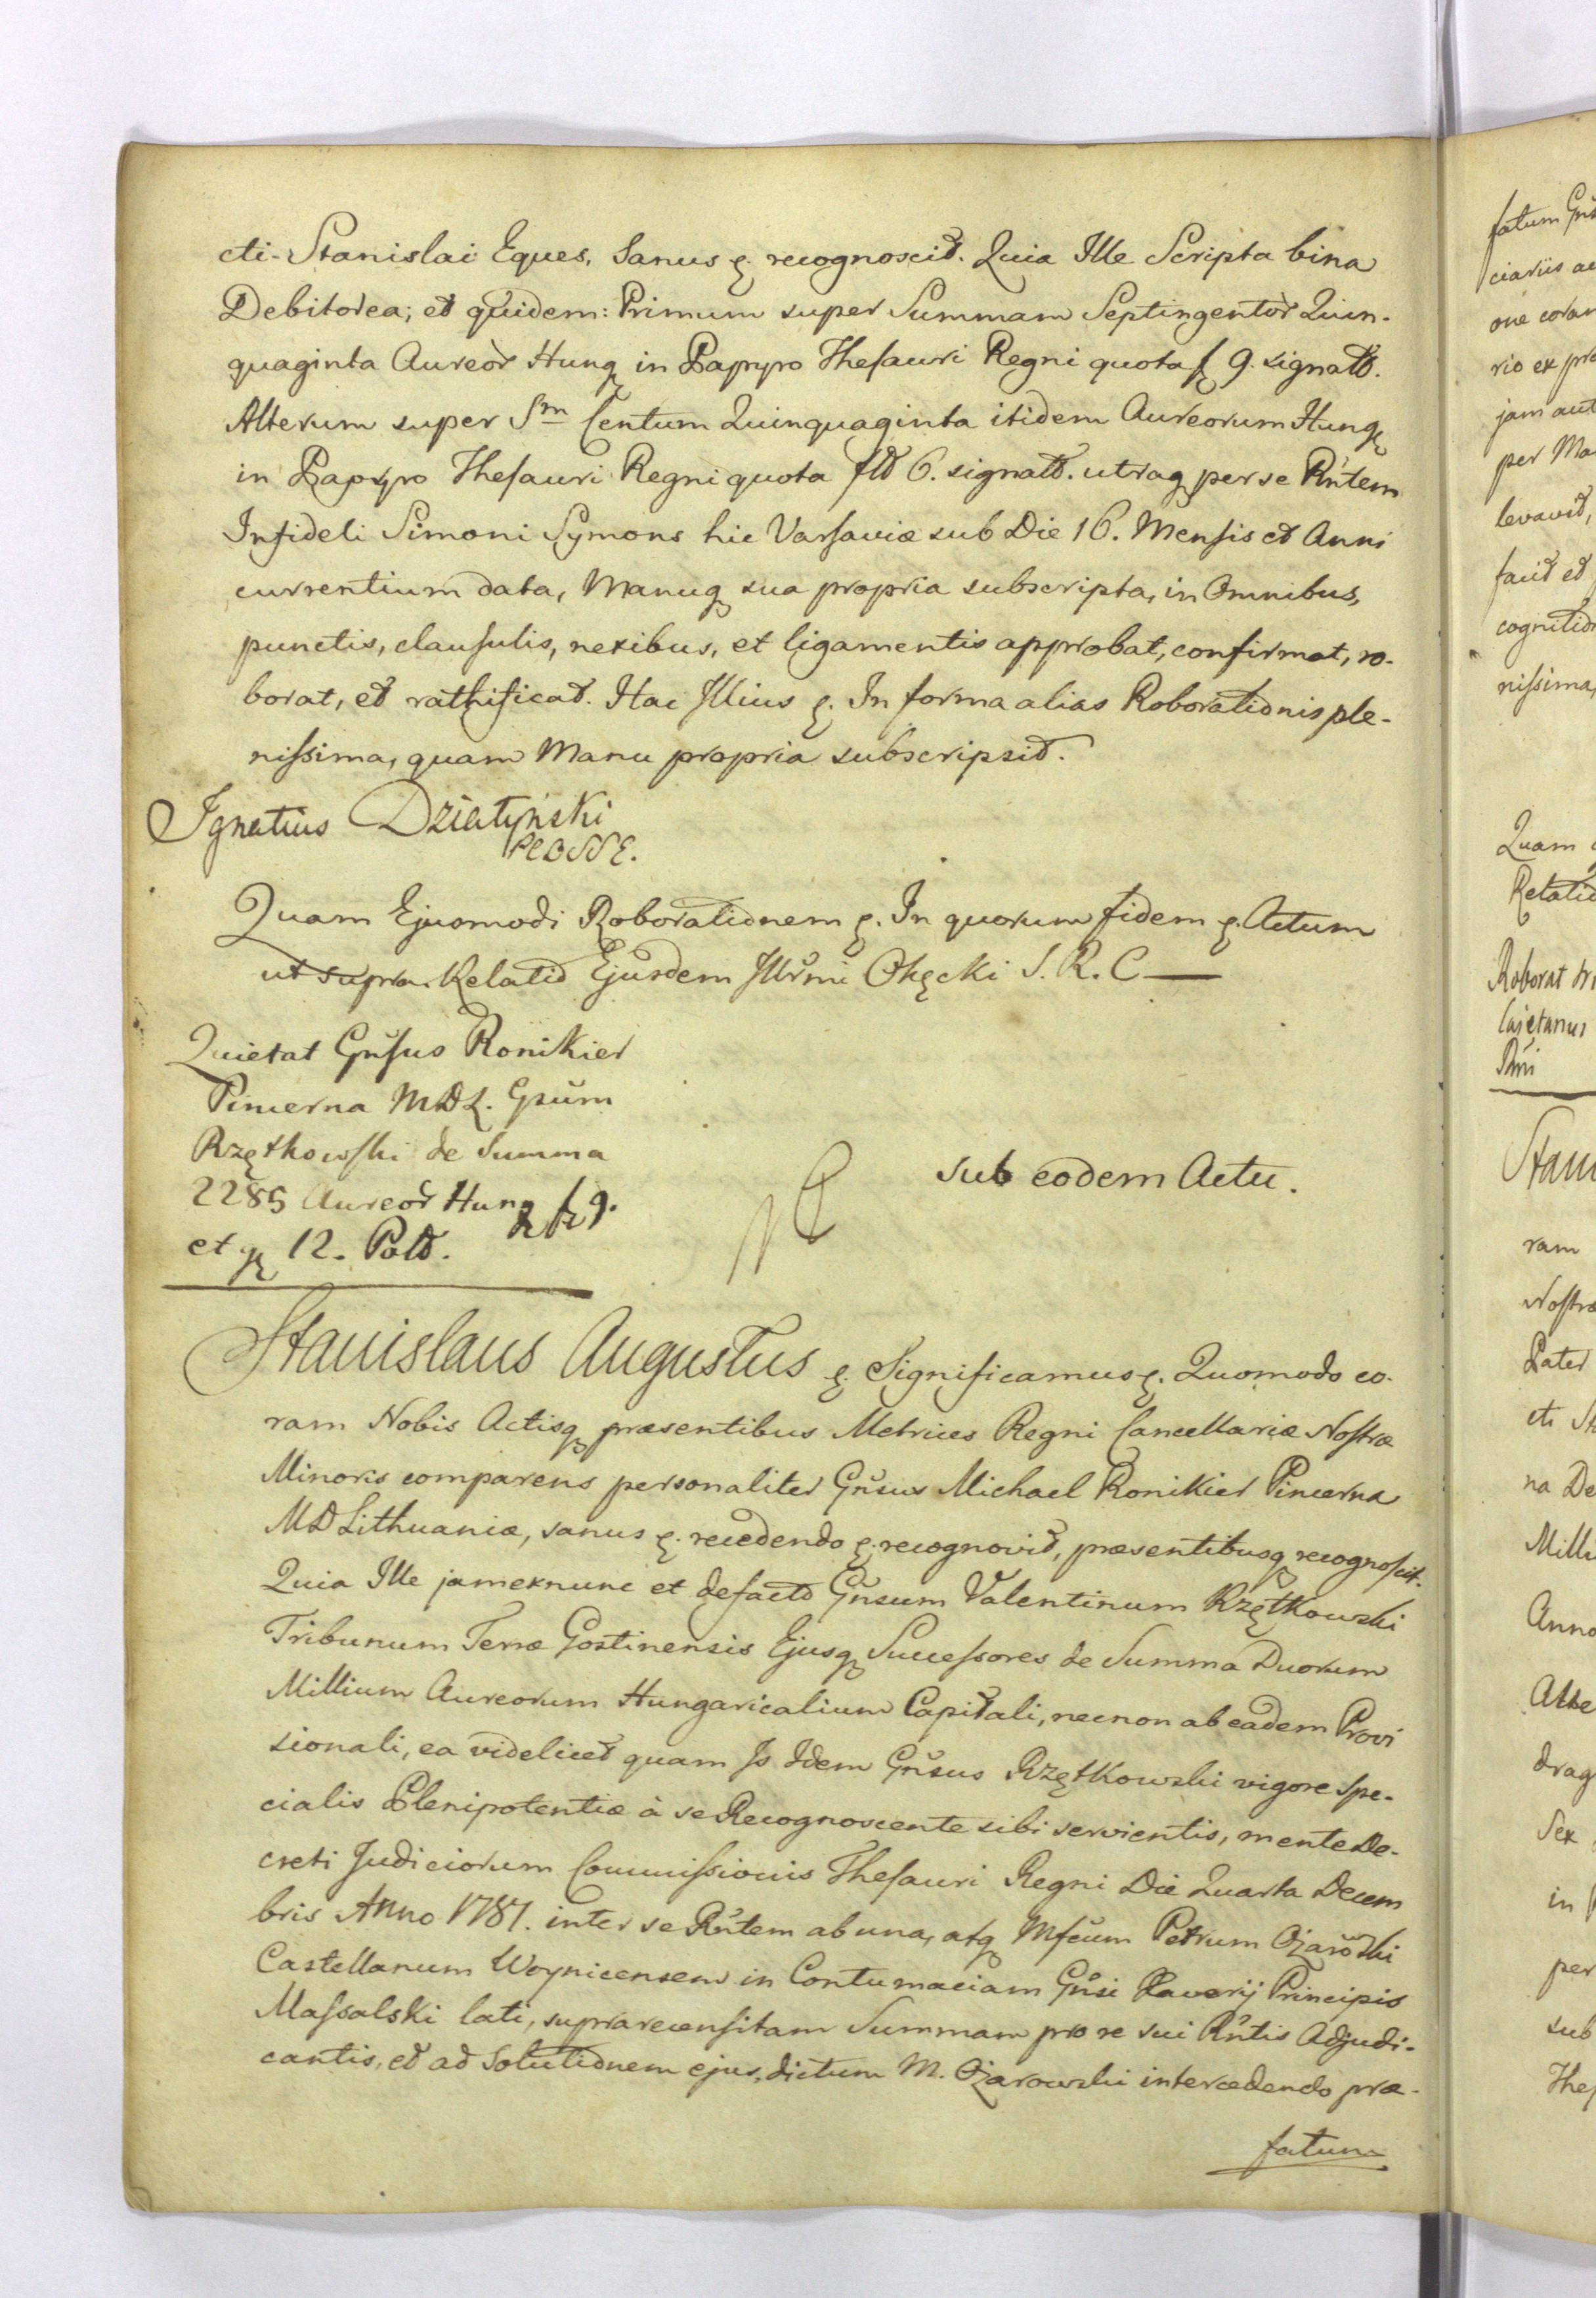 cti. Stanislai Eques, Sanus ꝛ. recognoscit. Quia Ille Scripta bina
Debitorea; et quidem: Primum super Summam Septingentor̃ Quin-
quaginta Aureor̃ Hung in Papyro Thesauri Regni quota f 9. signatt.
Alterum super Sm̃ Centum Quinquaginta itidem Aureorum Hung
in Papyro Thesauri Regni quota 6. signatt. utraq per se Rn̄tem
Infideli Simoni Symons hic Varsaviæ sub Die 16. Mensis et Anni
currentium data, Manuq sua propria subscripta, in Omnibus,
punctis, clausulis, nexibus, et ligamentis approbat, confirmat, ro-
borat, et rathificat. Hac Illius ꝛ. In forma alias Roborationis ple-
nissima, quam Manu propria subscripsit.
Ignatius Działyński
Quam Ejusmodi Roborationem ꝛ. In quorum fidem ꝛ. Actum
ut supra. Relatio Ejusdem Illr̃mi Okęcki S. R. C —
Quietat Gn̄sus Ronikier
Pincerna MDL. Gsum
Rzętkowski de Summa
2285 Aureor̃ Hung f 9.
et g 12. Poltt.
sub eodem Actu.
Stanislaus Augustus ꝛ. Significamus ꝛ. Quomodo co-
ram Nobis Actisq præsentibus Metrices Regni Cancellariæ Nostræ
Minoris comparens personaliter Gn̄sus Michael Ronikier Pincerna
MD Lithuaniæ, sanus ꝛ. recedendo ꝛ. recognovit, præsentibusq recognoscit.
Quia Ille jamexnunc et defacto Gn̄sum Valentinum Rzętkowski
Tribunum Terræ Gostinensis Ejusq Successores de Summa Duorum
Millium Aureorum Hungaricalium Capitali, necnon ab eadem Provi
sionali, ea videlicet quam Is Idem Gn̄sus Rzętkowski vigore Spe-
cialis Plenipotentiæ à se Recognoscente sibi servientis, mente De-
creti Judiciorum Commissionis Thesauri Regni Die Quarta Decem
bris Anno 1781. inter se Rn̄tem ab una, atq Mfcum Petrum Ożarowski
Castellanum Woynicensem in Contumaciam Gn̄si Xaverij Principis
Massalski lati, suprarecensitam Summam pro re sui Rn̄tis Adjudi-
cantis, et ad Solutionem ejus, dictum M. Ożarowski intercedendo præ-
fatum
fatum
ciariis
rio ex
per
levavit,
nissima,
Quam
Relatio
Roborat
Cajetanus
ram
Pater
na
Anno
Sex
in
per
sub